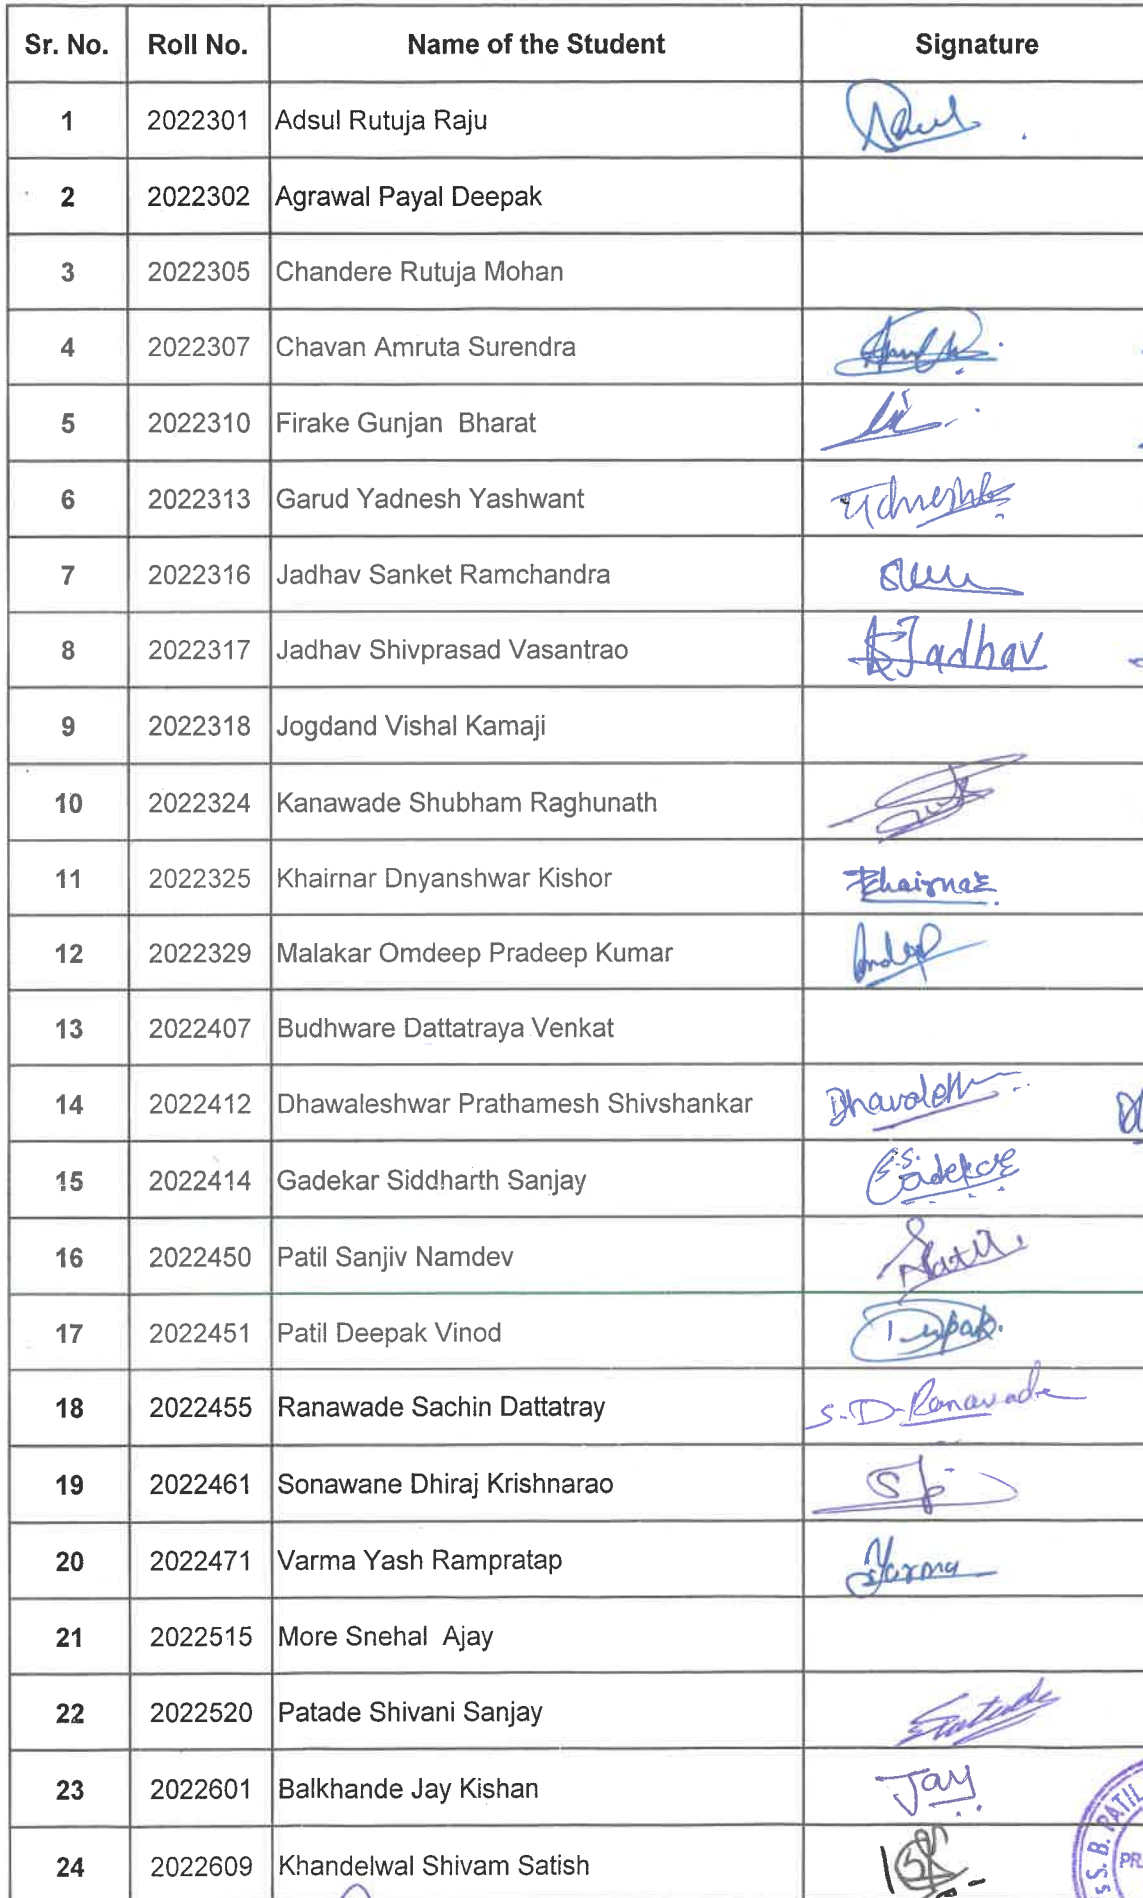 Sr. No. Roll No. Name of the Student Signature
1 2022301 Adsul Rutuja Raju
2 2022302 Agrawal Payal Deepak
3 2022305 Chandere Rutuja Mohan
4 2022307 Chavan Amruta Surendra
5 2022310 Firake Gunjan Bharat
6 2022313 Garud Yadnesh Yashwant
7 2022316 Jadhav Sanket Ramchandra
8 2022317 Jadhav Shivprasad Vasantrao Jadhav
9 2022318 Jogdand Vishal Kamaji
10 2022324 Kanawade Shubham Raghunath
11 2022325 Khairnar Dnyanshwar Kishor Khairnar
12 2022329 Malakar Omdeep Pradeep Kumar
13 2022407 Budhware Dattatraya Venkat
14 2022412 Dhawaleshwar Prathamesh Shivshankar
15 2022414 Gadekar Siddharth Sanjay
16 2022450 Patil Sanjiv Namdev
17 2022451 Patil Deepak Vinod Deepak
18 2022455 Ranawade Sachin Dattatray S.D. Ranawade
19 2022461 Sonawane Dhiraj Krishnarao
20 2022471 Varma Yash Rampratap
21 2022515 More Snehal Ajay
22 2022520 Patade Shivani Sanjay
23 2022601 Balkhande Jay Kishan Jay
24 2022609 Khandelwal Shivam Satish
S. B. PATIL